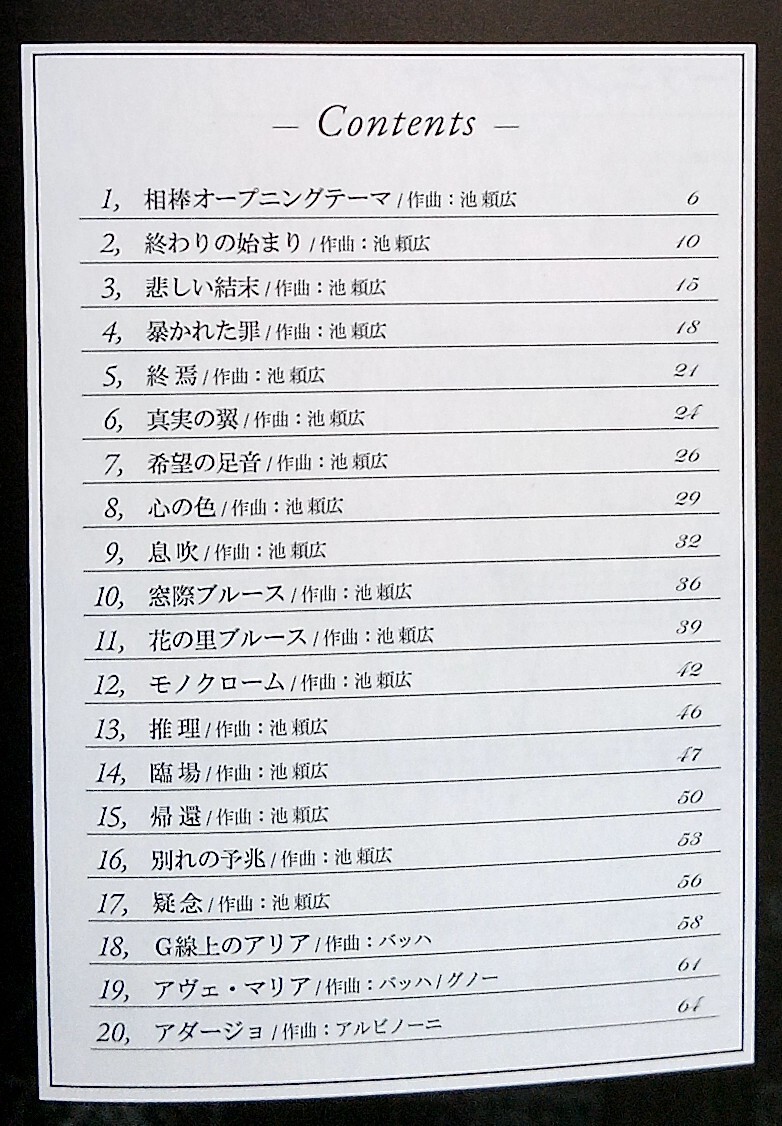 — Contents —
1, 相棒オープニングテーマ / 作曲：池 頼広 6
2, 終わりの始まり / 作曲：池 頼広 10
3, 悲しい結末 / 作曲：池 頼広 15
4, 暴かれた罪 / 作曲：池 頼広 18
5, 終 焉 / 作曲：池 頼広 21
6, 真実の翼 / 作曲：池 頼広 24
7, 希望の足音 / 作曲：池 頼広 26
8, 心の色 / 作曲：池 頼広 29
9, 息 吹 / 作曲：池 頼広 32
10, 窓際ブルース / 作曲：池 頼広 36
11, 花の里ブルース / 作曲：池 頼広 39
12, モノクローム / 作曲：池 頼広 42
13, 推 理 / 作曲：池 頼広 46
14, 臨 場 / 作曲：池 頼広 47
15, 帰 還 / 作曲：池 頼広 50
16, 別れの予兆 / 作曲：池 頼広 53
17, 疑 念 / 作曲：池 頼広 56
18, G線上のアリア / 作曲：バッハ 58
19, アヴェ・マリア / 作曲：バッハ / グノー 61
20, アダージョ / 作曲：アルビノーニ 64